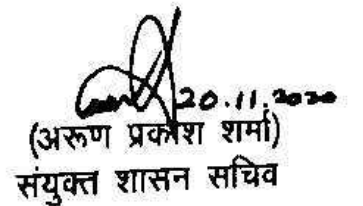 20.11.2020
(अरूण प्रकाश शर्मा)
संयुक्त शासन सचिव